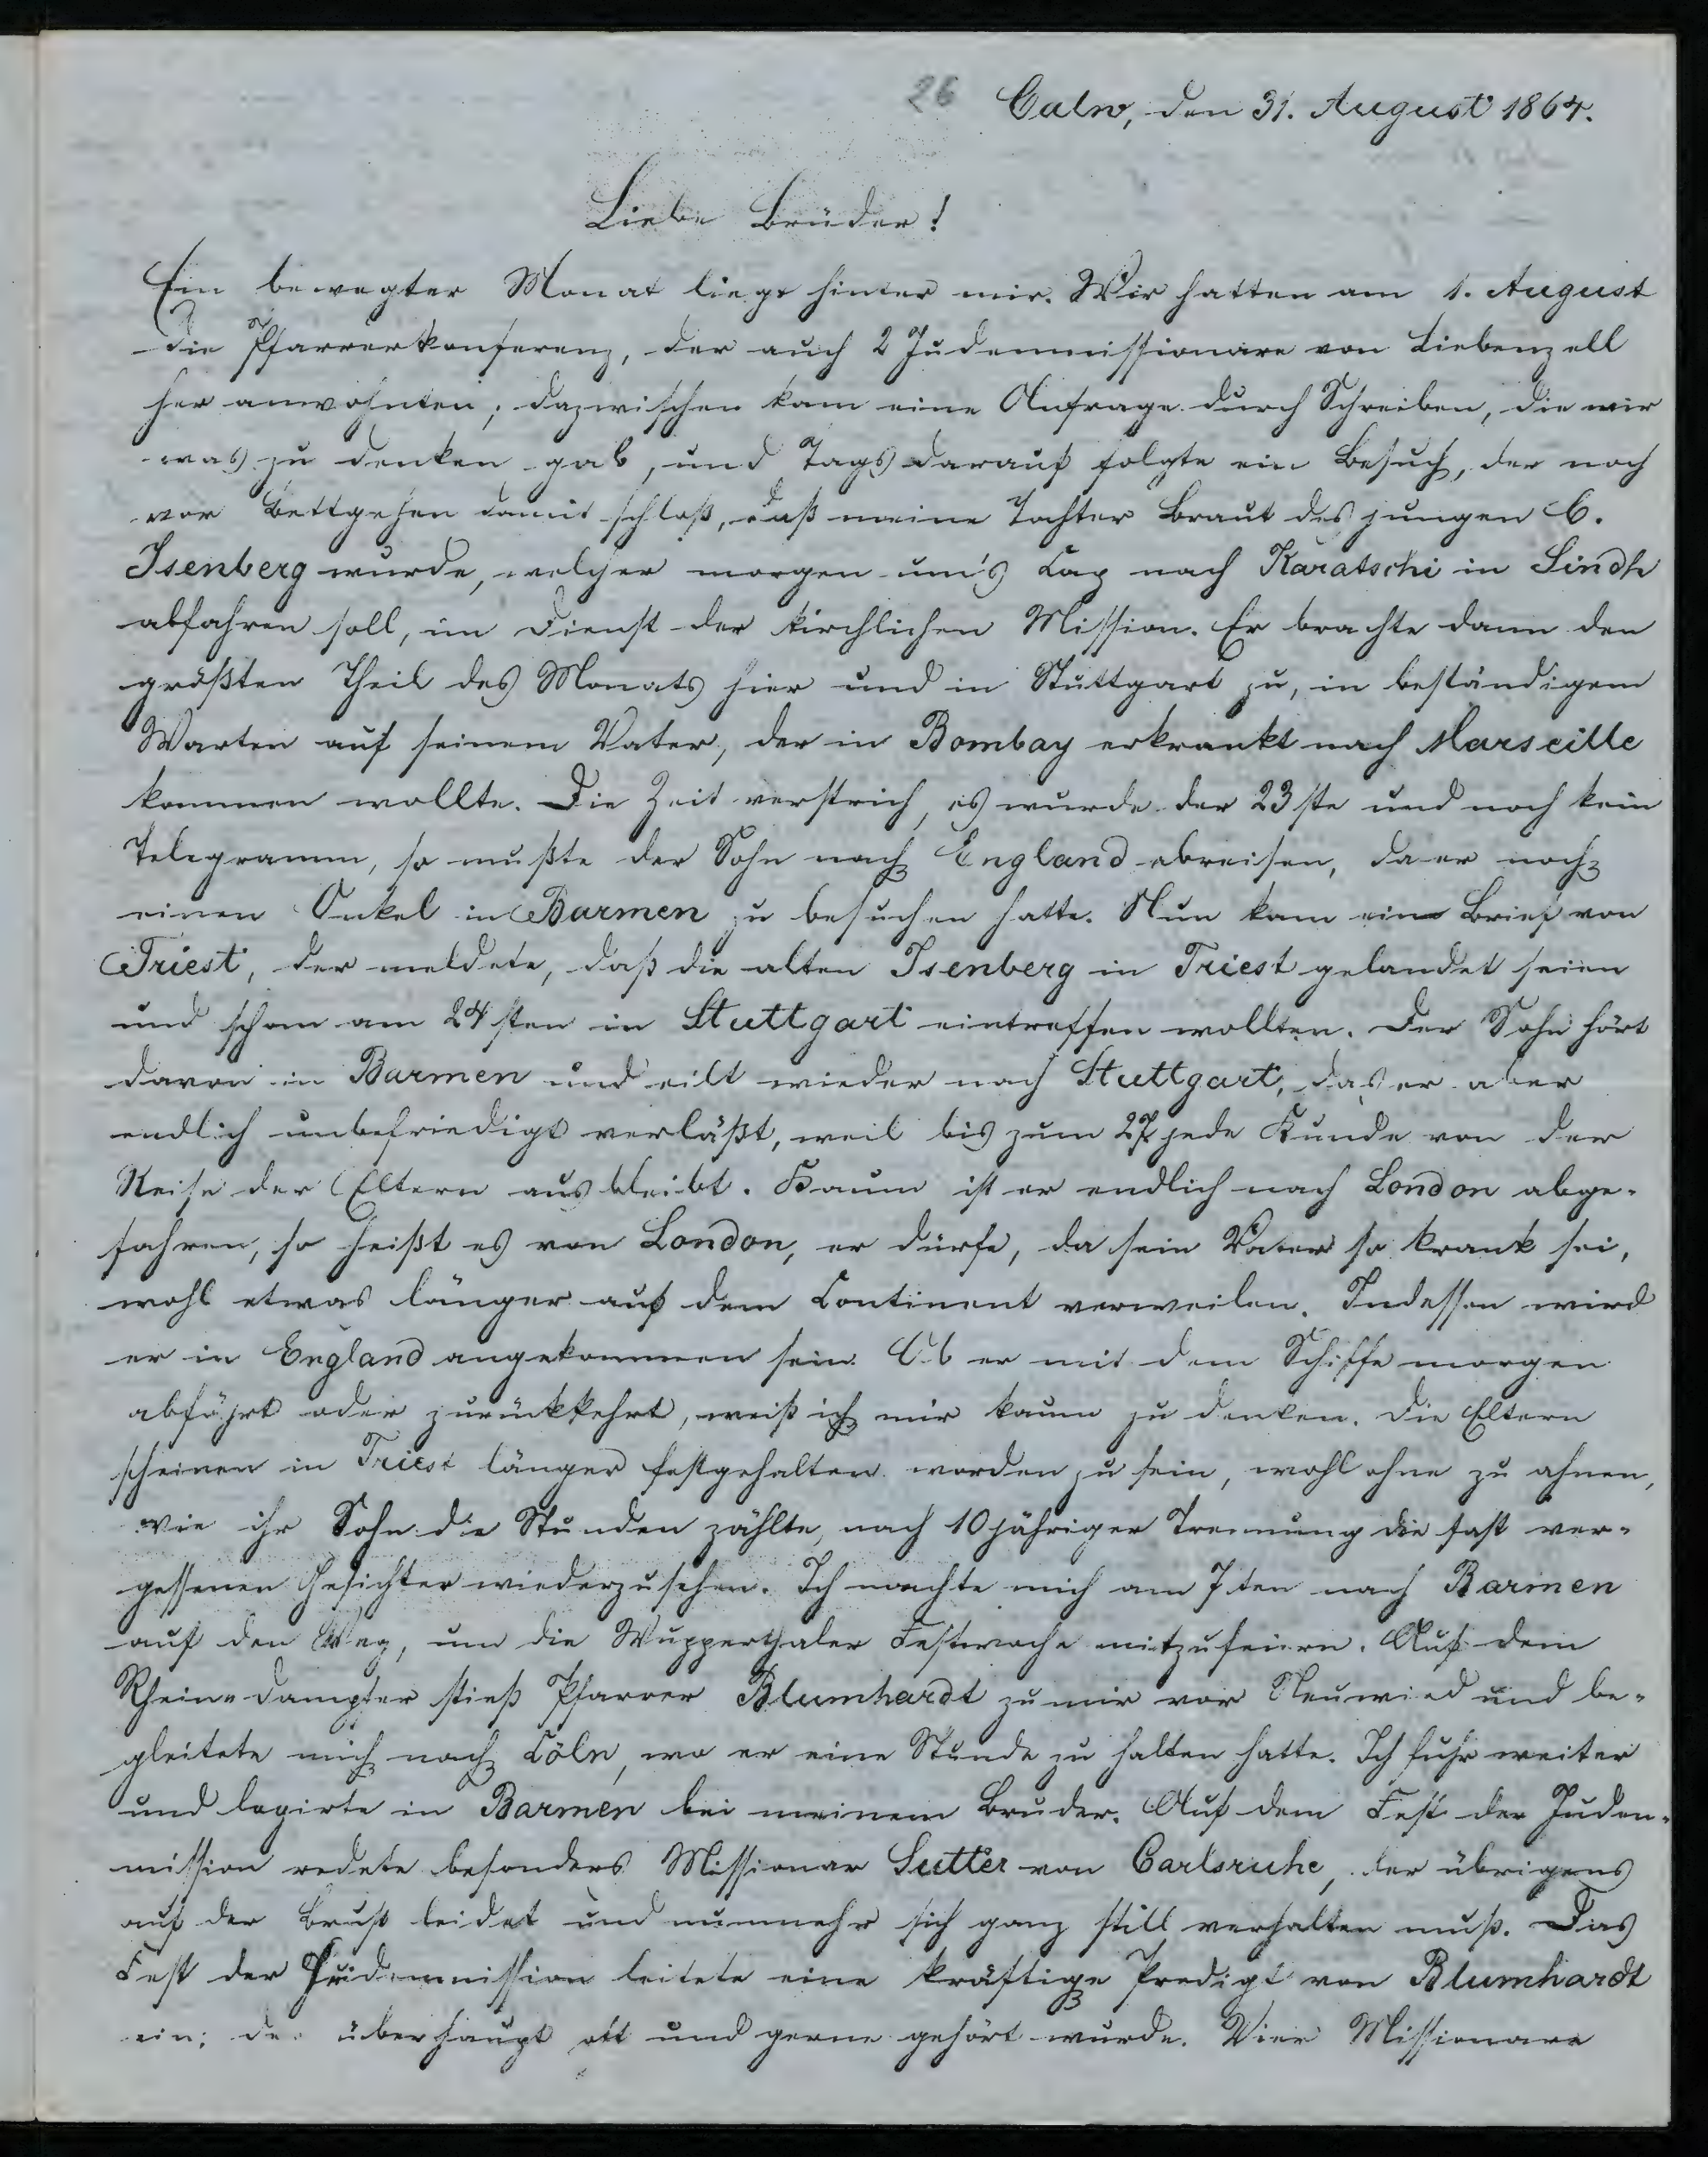 26 Calw, den 31. August 1864.
Liebe Brüder!
Ein bewegter Monat liegt hinter mir. Wir hatten am 1. August
die Pfarrerkonferenz, der auch 2 Judenmissionare von Liebenzell
her anwohnten; dazwischen kam eine Anfrage durch Schreiben, die mir
was zu denken gab, und Tags darauf folgte ein Besuch, der noch
vor Bettgehen damit schloß, daß meine Tochter Braut des jungen C.
Isenberg wurde, welcher morgen um's Cap nach Karatschi in Sindh
abfahren soll, im Dienst der kirchlichen Mission. Er brachte dann den
größten Theil des Monats hier und in Stuttgart zu, in beständigem
Warten auf seinem Vater, der in Bombay erkrankt nach Marseille
kommen wollte. Die Zeit verstrich, es wurde der 23ste und noch kein
Telegramm, so mußte der Sohn nach England abreisen, da er noch
einen Onkel in Barmen zu besuchen hatte. Nun kam ein Brief von
Triest, der meldete, daß die alten Isenberg in Triest gelandet seien
und schon am 24sten in Stuttgart eintreffen wollten. Der Sohn hört
davon in Barmen und eilt wieder nach Stuttgart, das er aber
endlich unbefriedigt verläßt, weil bis zum 27 jede Kunde von der
Reise der Eltern ausbleibt. Kaum ist er endlich nach London abge-
fahren, so heißt es von London, er dürfe, da sein Vater so krank sei,
wohl etwas länger auf dem Continent verweilen. Indessen wird
er in England angekommen sein. Ob er mit dem Schiffe morgen
abfährt oder zurückkehrt, weiß ich mir kaum zu denken. Die Eltern
scheinen in Triest länger festgehalten worden zu sein, wohl ohne zu ahnen,
wie ihr Sohn die Stunden zählte, nach 10jähriger Trennung die fast ver-
gessenen Gesichter wiederzusehen. Ich machte mich am 7ten nach Barmen
auf den Weg, um die Wupperthaler Festwoche mitzufeiern. Auf dem
Rhein-Dampfer stieß Pfarrer Blumhardt zu mir vor Neuwied und be-
gleitete mich nach Cöln, wo er eine Stunde zu halten hatte. Ich fuhr weiter
und logirte in Barmen bei meinem Bruder. Auf dem Fest der Juden-
mission redete besonders Missionar Sutter von Carlsruhe, der übrigens
auf der Brust leidet und nunmehr sich ganz still verhalten muß. Das
Fest der Heidenmission leitete eine kräftige Predigt von Blumhardt
ein; der überhaupt oft und gerne gehört wurde. Vier Missionare